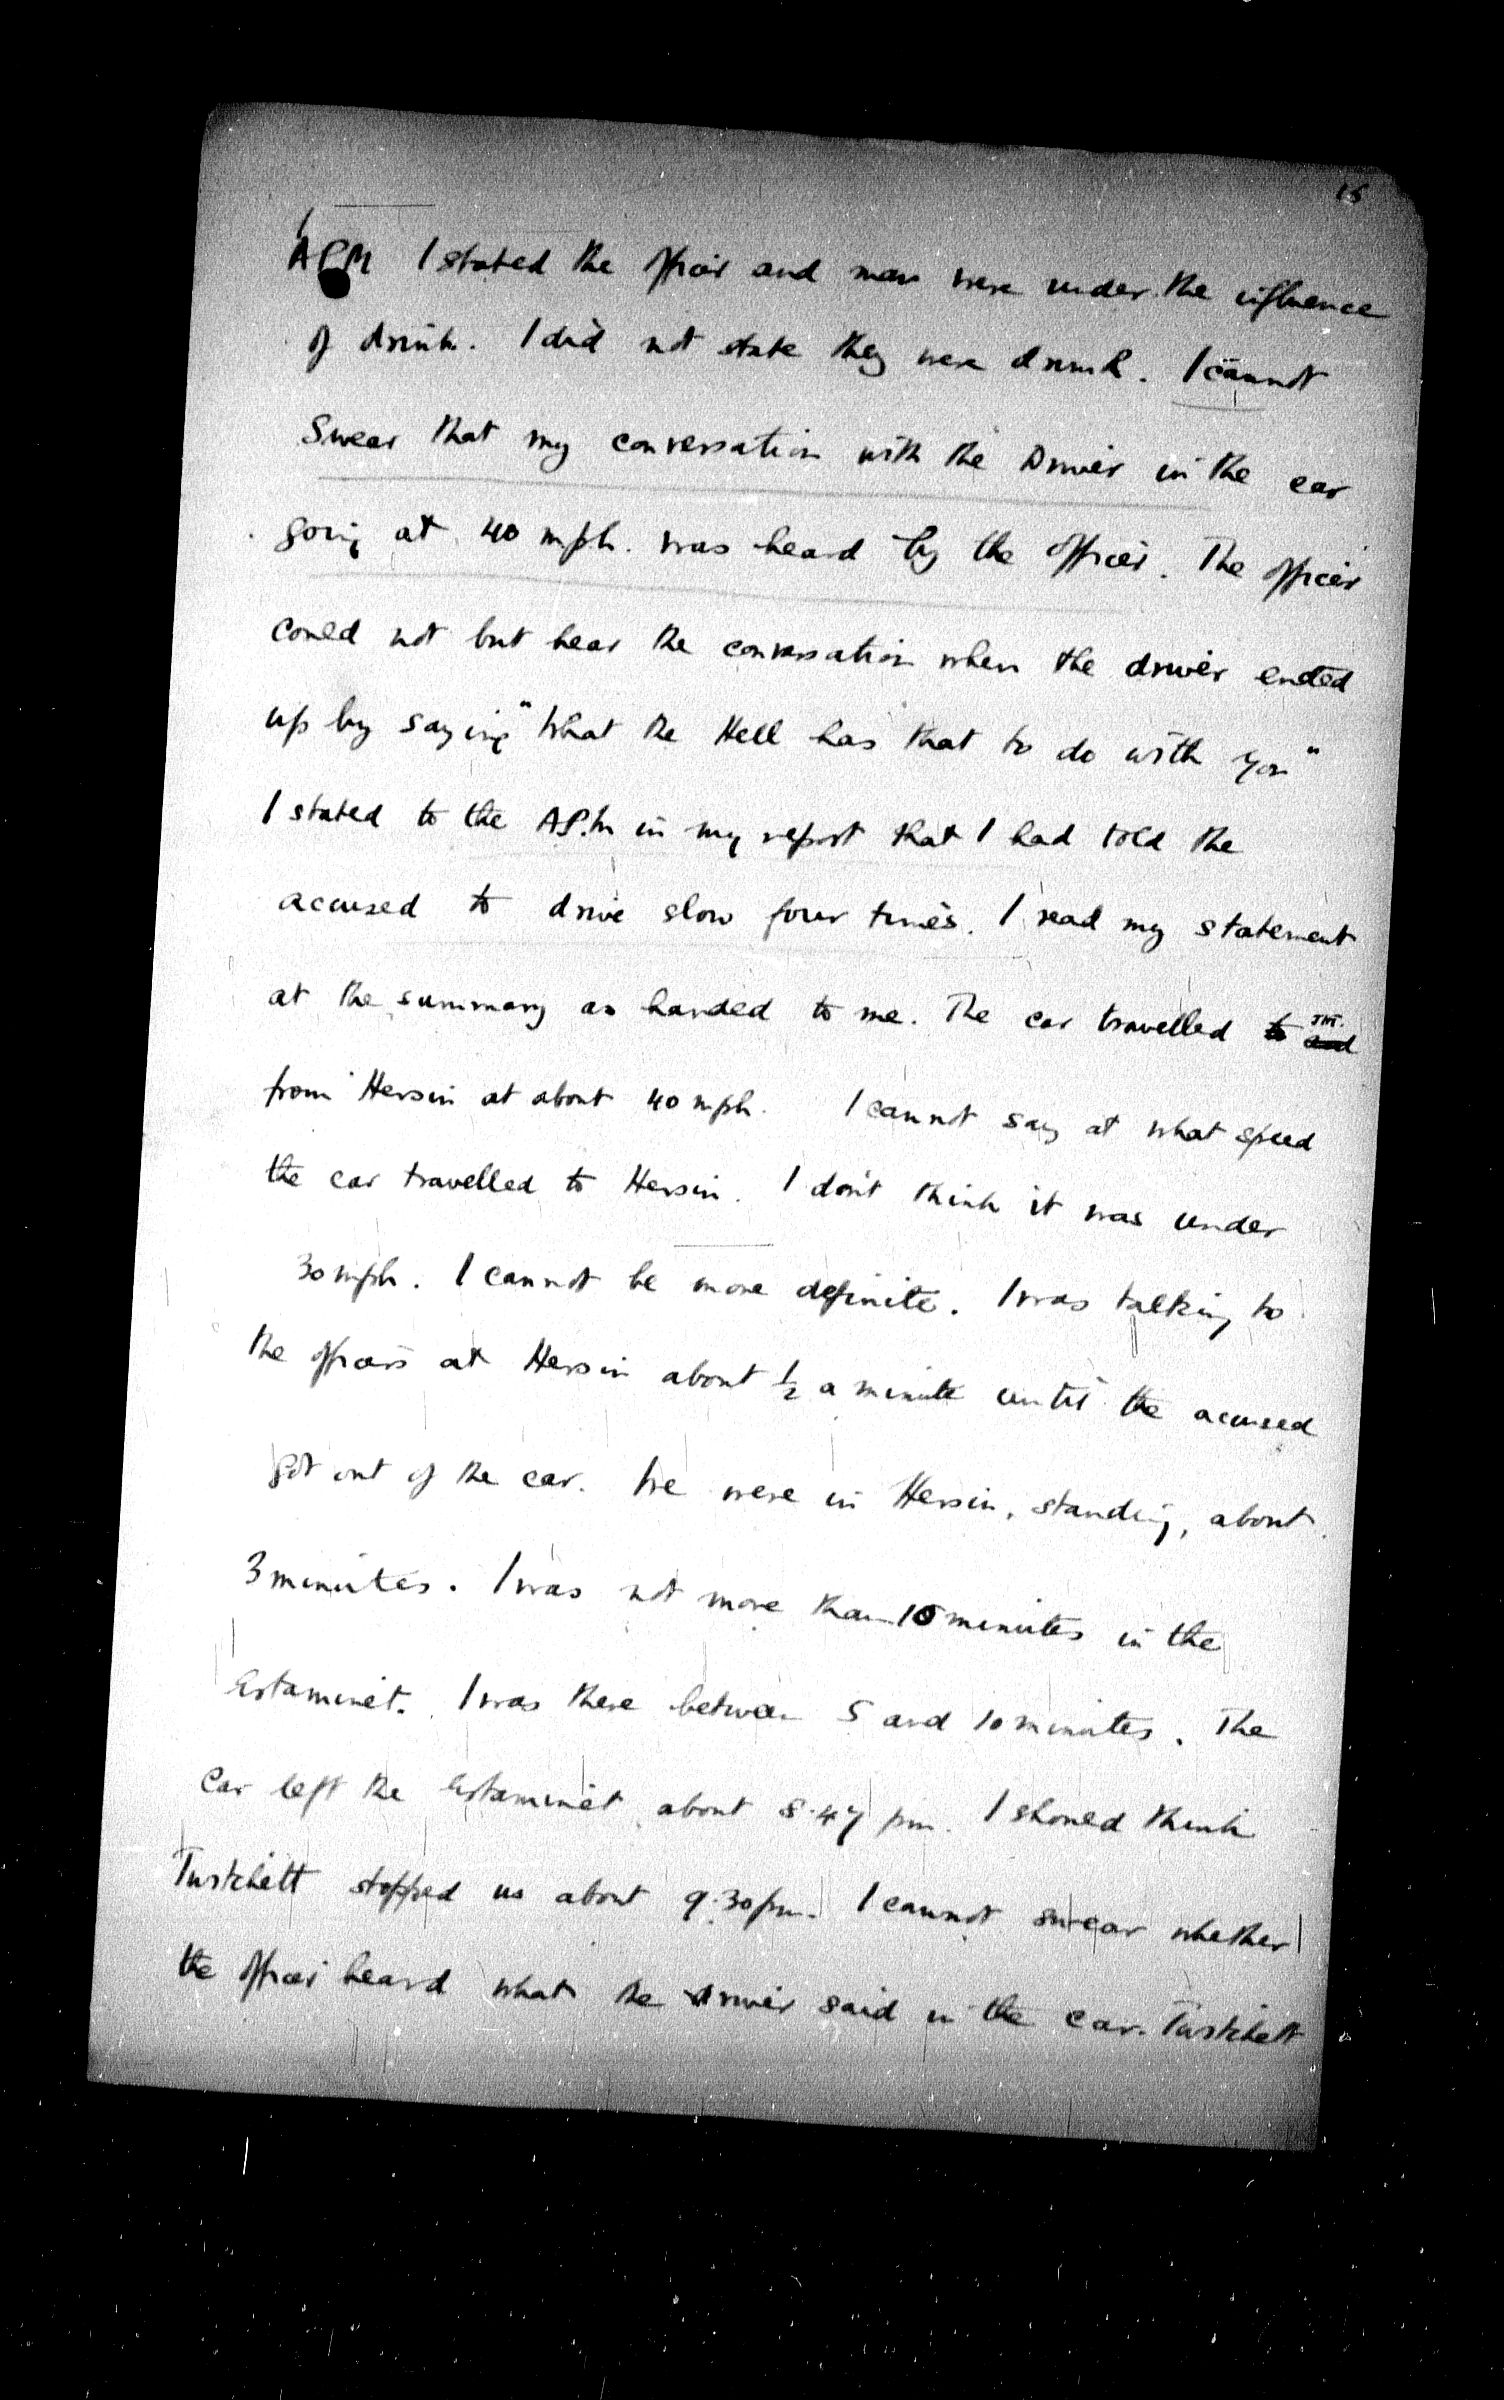 15
APM I stated the officer and man were under the influence
of drink. I did not state they were drunk. I cannot
Swear that my conversation with the Driver in the car
going at 40 mph. was heard by the officer. The officer
could not but hear the conversation when the driver ended
up by saying "What the Hell has that to do with you"
I stated to the APM in my report that I had told the
accused to drive slow four times. I read my statement
at the summary as handed to me. The car travelled to and
from Hersin at about 40 mph. I cannot say at what speed
the car travelled to Hersin. I don't think it was under
30 mph. I cannot be more definite. I was talking to
the officers at Hersin about ½ a minute until the accused
got out of the car. We were in Hersin, standing, about
3 minutes. I was not more than 10 minutes in the
Estaminet. I was there between 5 and 10 minutes. The
Car left the Estaminet about 8.47 pm. I should think
Twitchett stopped us about 9.30 pm. I cannot swear whether
the officer heard what the driver said in the car. Twitchett